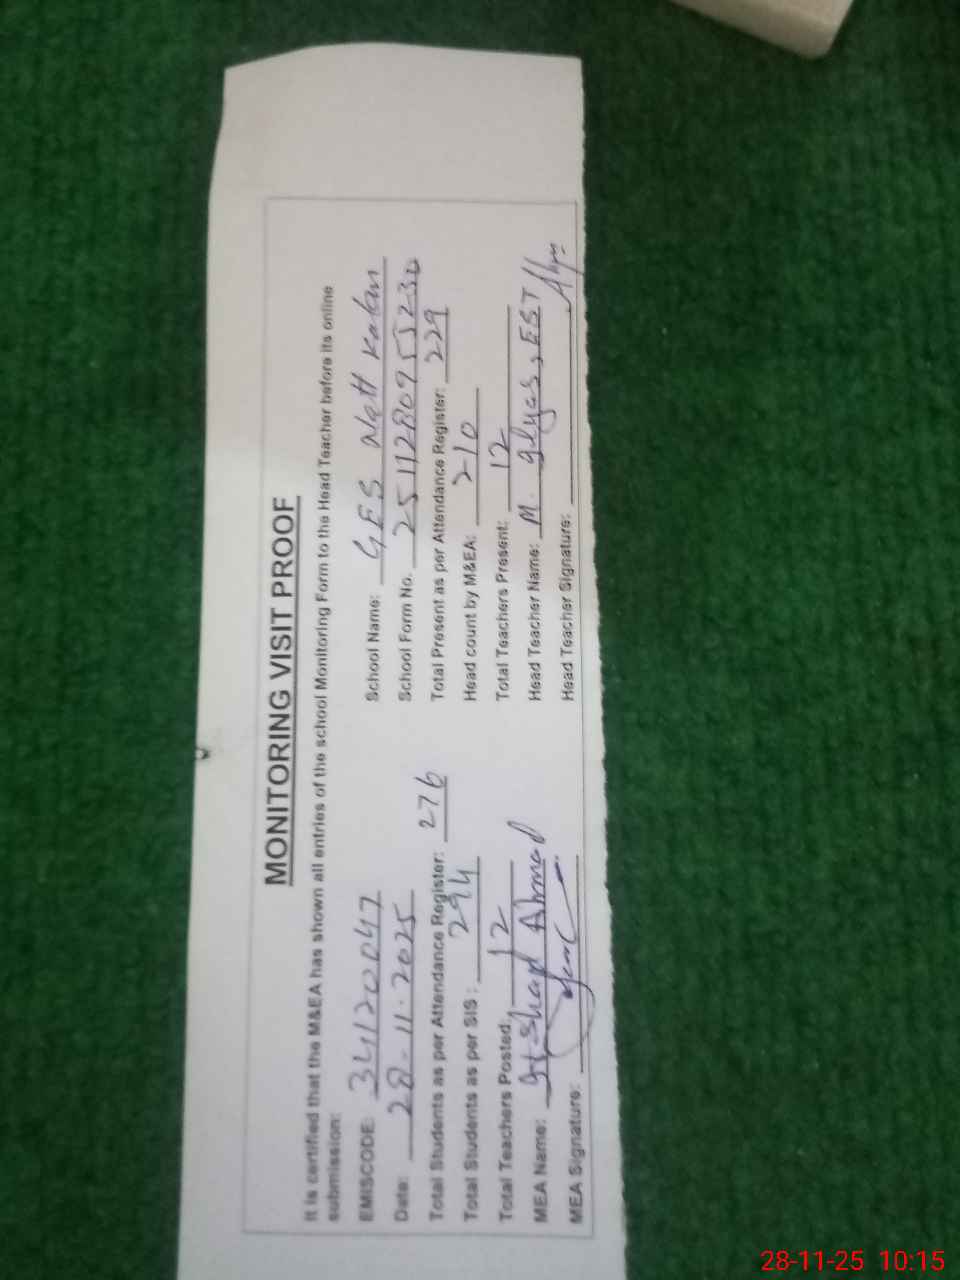 MONITORING VISIT PROOF
It is certified that the M&EA has shown all entries of the school Monitoring Form to the Head Teacher before its online
submission:
EMISCODE: 34120047 School Name: GES Natt Kalan
Date: 28-11-2025 School Form No. 2511280955230
Total Students as per Attendance Register: 276 Total Present as per Attendance Register: 229
Total Students as per SIS: 294 Head count by M&EA: 210
Total Teachers Posted: 12 Total Teachers Present: 12
MEA Name: Irshad Ahmad Head Teacher Name: M. Ilyas, EST
MEA Signature: Head Teacher Signature:
28-11-25 10:15